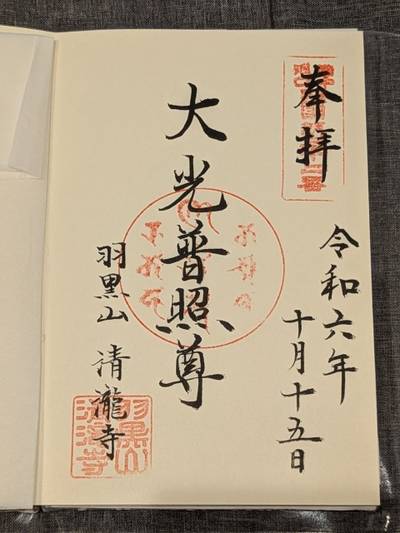 奉拝
令和六年
十月十五日
大光普照尊
羽黒山 清瀧寺
羽黒山
清瀧寺